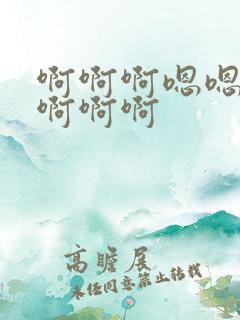 啊啊啊嗯嗯
啊啊啊
高瞻展
未经同意禁止转载